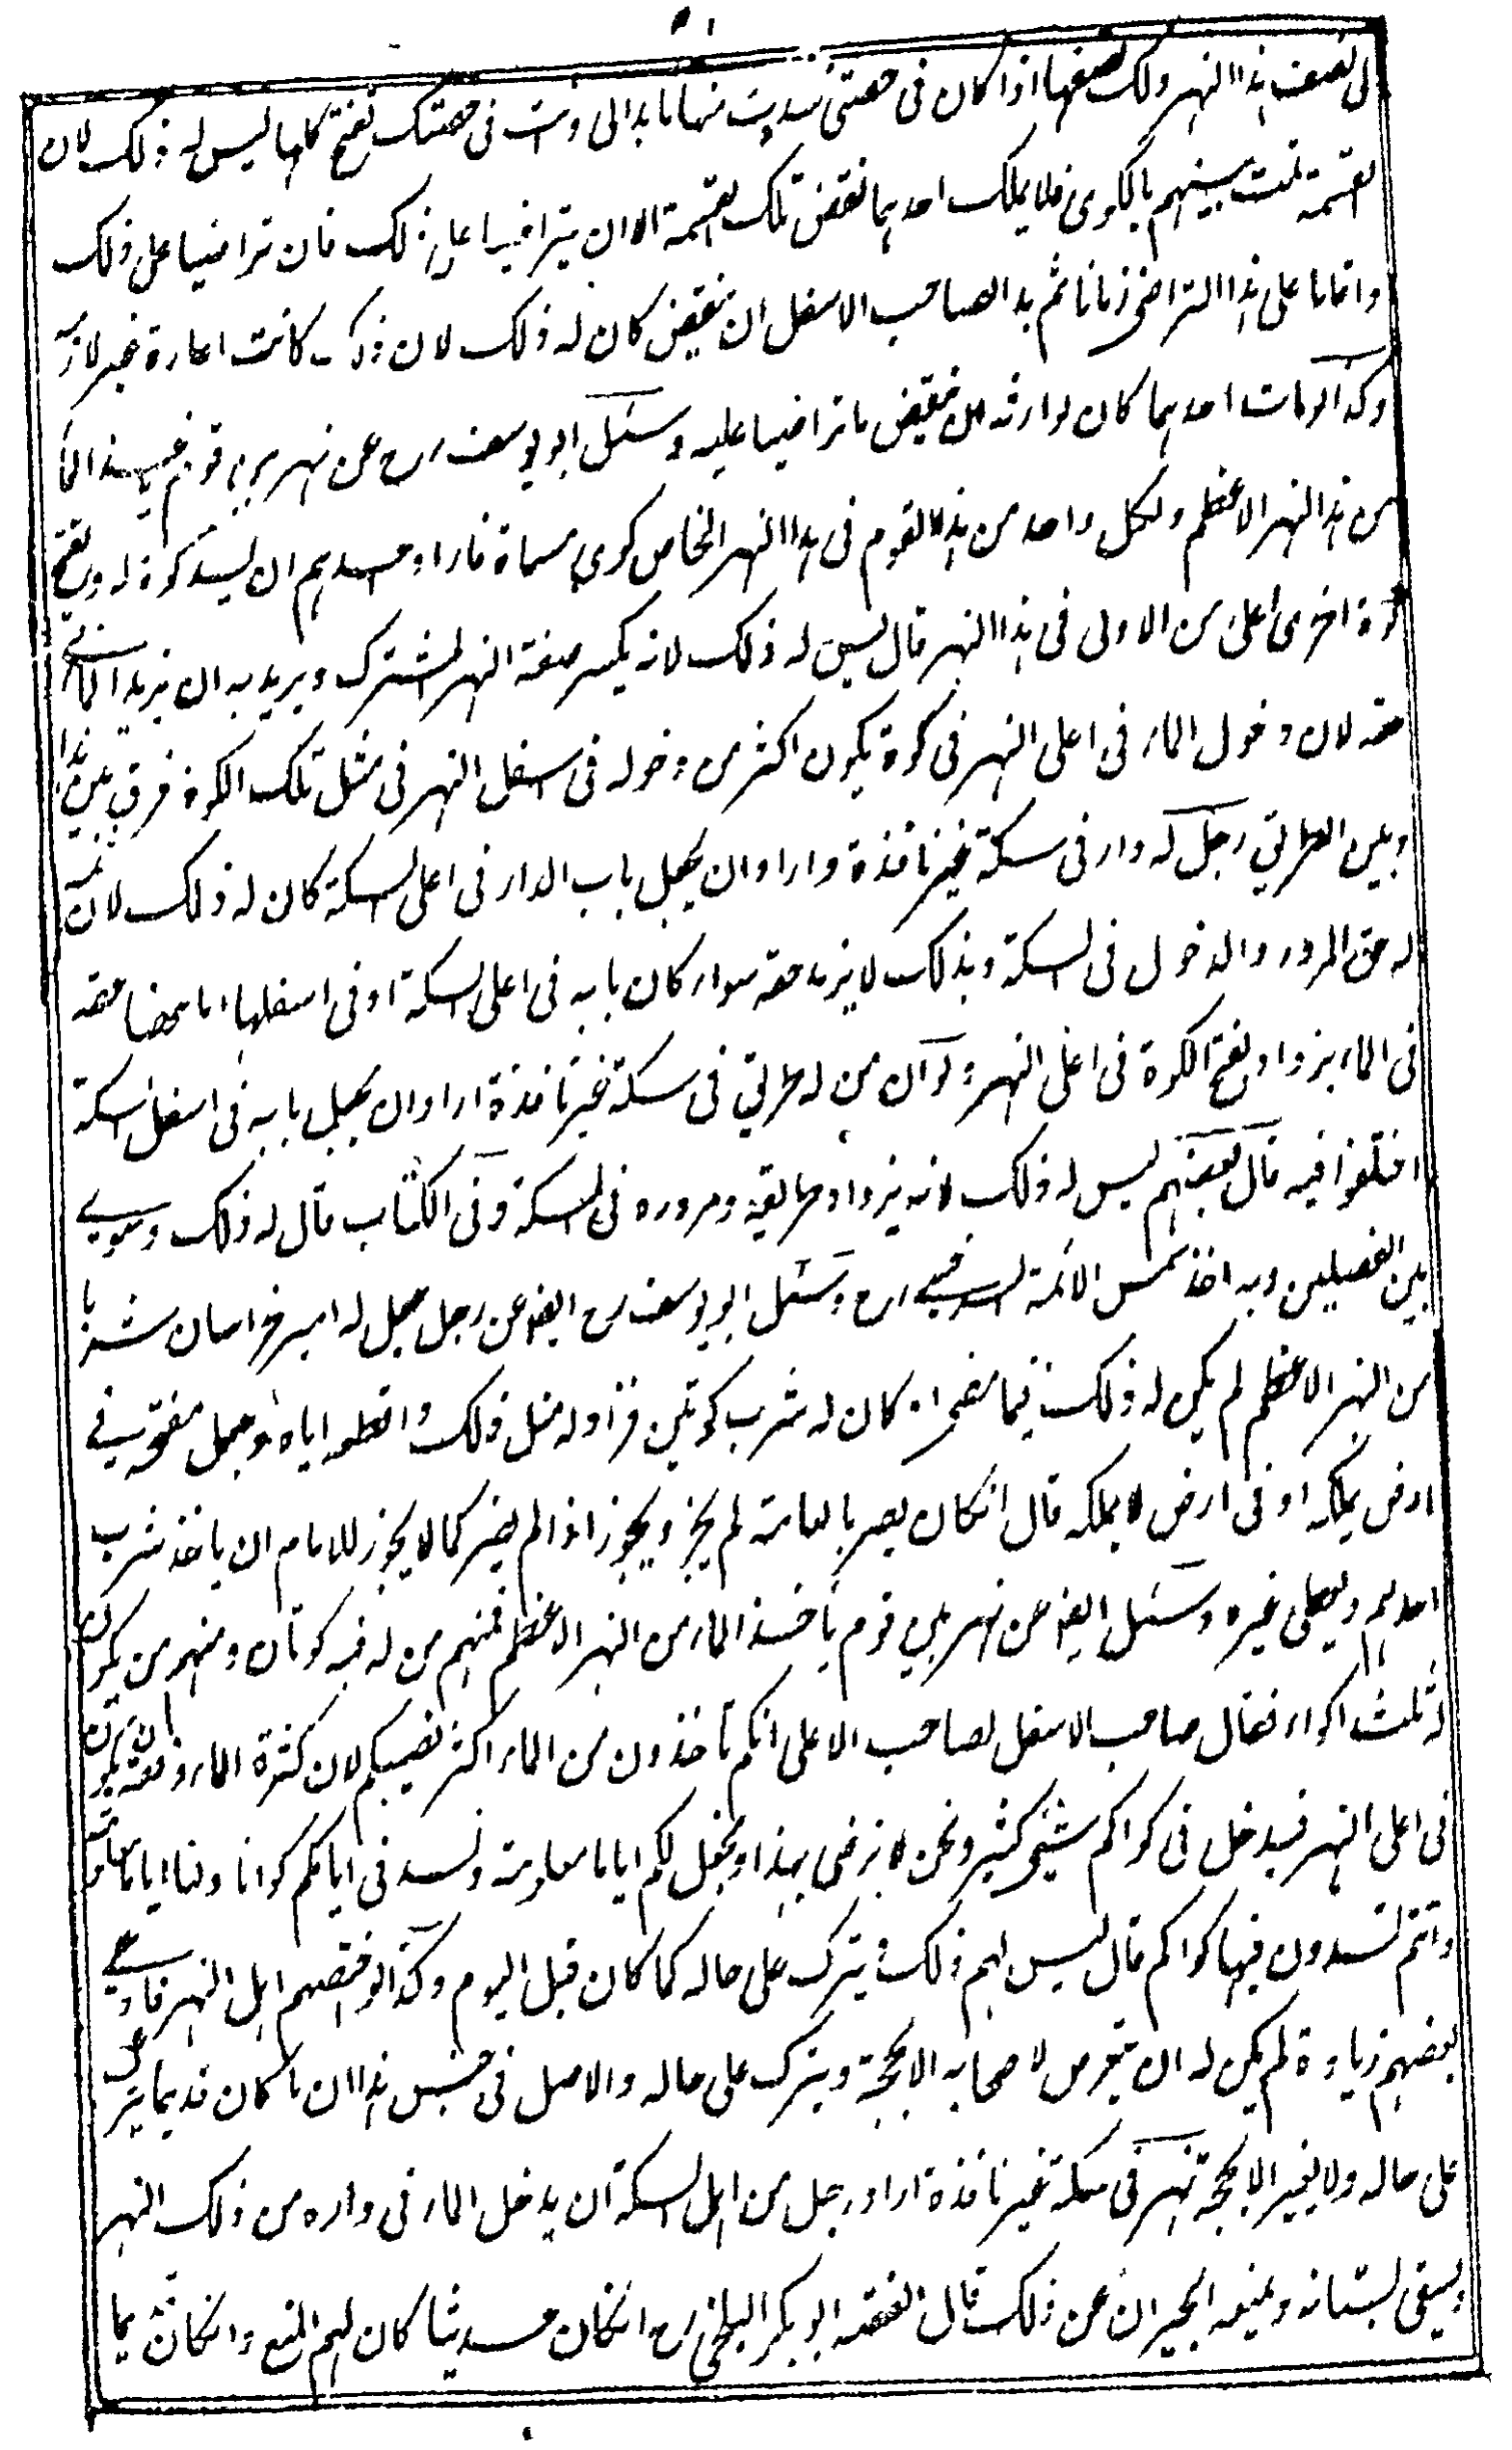 لى نصف هذا النهر ولك نصفها اذا كان فى حصتى سددت منها ما بدا لى وانت فى حصتك تفتح كلها ليس له ذلك لان
القسمة تمت بينهم بالكوى فلا يملك احدهما نقض تلك القسمة الا ان يتراضيا على ذلك فان تراضيا على ذلك
واقاما على هذا التراضى زمانا ثم بدا لصاحب الاسفل ان ينقض كان له ذلك لان ذلك كانت اعارة غير لازمة
وكذا لو مات احدهما كان لوارثه ان ينقض ما تراضيا عليه وسئل ابو يوسف رح عن نهر بين قوم ياخذ الماء
من هذا النهر الاعظم ولكل واحد من هؤلا القوم فى هذا النهر الخاص كوى مسماة فاراد احدهم ان يسد كوة له ويفتح
كوة اخرى اعلى من الاولى فى هذا النهر قال ليس له ذلك لانه يكسر ضفة النهر المشترك ويريد به ان يزيد الماء فى
حقه لان دخول الماء فى اعلى النهر فى كوة يكون اكثر من دخوله فى اسفل النهر فى مثل تلك الكوة فرق بين هذا
وبين الطريق رجل له دار فى سكة غير نافذة واراد ان يجعل باب الدار فى اعلى السكة كان له ذلك لان ثمه
له حق المرور والدخول فى السكة وبذلك لا يزيد حقه سواء كان بابه فى اعلى السكة او فى اسفلها اما ههنا حقه
فى الماء يزداد بفتح الكوة فى اعلى النهر ولو ان من له طريق فى سكة غير نافذة اراد ان يجعل بابه فى اسفل السكة
اختلفوا فيه قال بعضهم ليس له ذلك لانه يزداد طريقه ومروره فى السكة وفى الكتاب قال له ذلك وسوى
بين الفصلين وبه اخذ شمس الائمة السرخسى رح وسئل ابو يوسف رح ايضا عن رجل جعل له امير خراسان شربا
من النهر الاعظم لم يكن له ذلك فيما مضى او كان له شرب كوتين فزاد له مثل ذلك واقطعه اياه وجعل مفتحه فى
ارض يملكه او فى ارض لا يملكه قال انكان يضر بالعامة لم يجز ويجوز اذا لم يضر كما لا يجوز للامام ان ياخذ شرب
احدهم ويعطى غيره وسئل ايضا عن نهر بين قوم ياخذ الماء من النهر الاعظم فمنهم من له فيه كوتان ومنهم من يكون
له ثلث اكواء فقال صاحب الاسفل لصاحب الاعلى انكم تأخذون من الماء اكثر نصيبكم لان كثرة الماء ودفعته يكون
فى اعلى النهر فيدخل فى كواكم شيئ كثير ونحن لا نرضى بهذا ونجعل لكم اياما معلومة ونسد فى ايامكم كوانا ولنا اياما معلومة
وانتم تسدون فيها كواكم قال ليس لهم ذلك ويترك على حاله كما كان قبل اليوم وكذا لو اختصم اهل النهر فادعى
بعضهم زيادة لم يكن له ان يتعرض لاصحابه الا بحجة ويترك على حاله والاصل فى جنس هذا ان ما كان قديما يترك
على حاله ولا يغير الا بحجة نهر فى سكة غير نافذة اراد رجل من اهل السكة ان يدخل الماء فى داره من ذلك النهر
ويسقى بستانه ويمنعه الجيران عن ذلك قال الفقيه ابو بكر البلخى رح انكان حديثا كان لهم المنع وانكان قديما